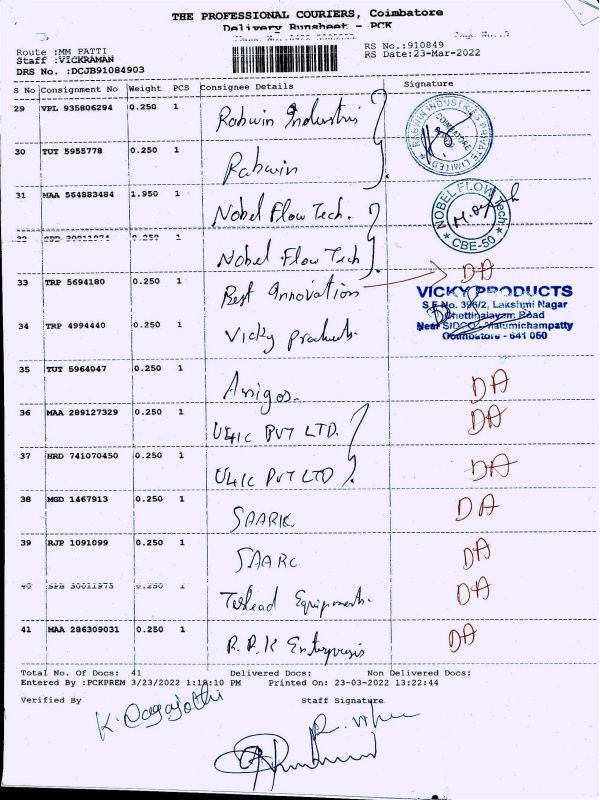 THE PROFESSIONAL COURIERS, Coimbatore
Delivery Runsheet - PCK
Route :MM PATTI
Staff :VICKRAMAN
DRS No. :DCJB91084903
RS No.:910849
RS Date:23-Mar-2022
S No Consignment No Weight PCS Consignee Details Signature
29 VPL 935806294 0.250 1 Rabwin Industris
RABWIN INDUSTRIES PRIVATE LIMITED COIMBATORE
30 TUT 5955778 0.250 1 Rabwin
31 MAA 564883484 1.950 1 Nobel Flow Tech.
NOBEL FLOW Tech CBE-50
0.250 1 Nobel Flow Tech
33 TRP 5694180 0.250 1 Best Innovation DA
VICKY PRODUCTS
S.F No. 396/2, Lakshmi Nagar
Chettipalayam Road
Near SIDCO, Malumichampatty
Coimbatore - 641 050
34 TRP 4994440 0.250 1 Vicky Products.
35 TUT 5964047 0.250 1 Amigos. DA
36 MAA 289127329 0.250 1 PVT LTD. DA
37 HRD 741070450 0.250 1 PVT LTD DA
38 MGD 1467913 0.250 1 SAARK DA
39 RJP 1091099 0.250 1 SAARC DA
40 0.250 1 Equipments. DA
41 MAA 286309031 0.250 1 R.R.K Enterprisis DA
Total No. Of Docs: 41 Delivered Docs: Non Delivered Docs:
Entered By :PCKPREM 3/23/2022 PM Printed On: 23-03-2022 13:22:44
Verified By Staff Signature
K. Nagajothi